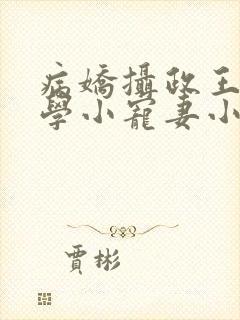 病嬌攝政王
學小寵妻小
賈彬